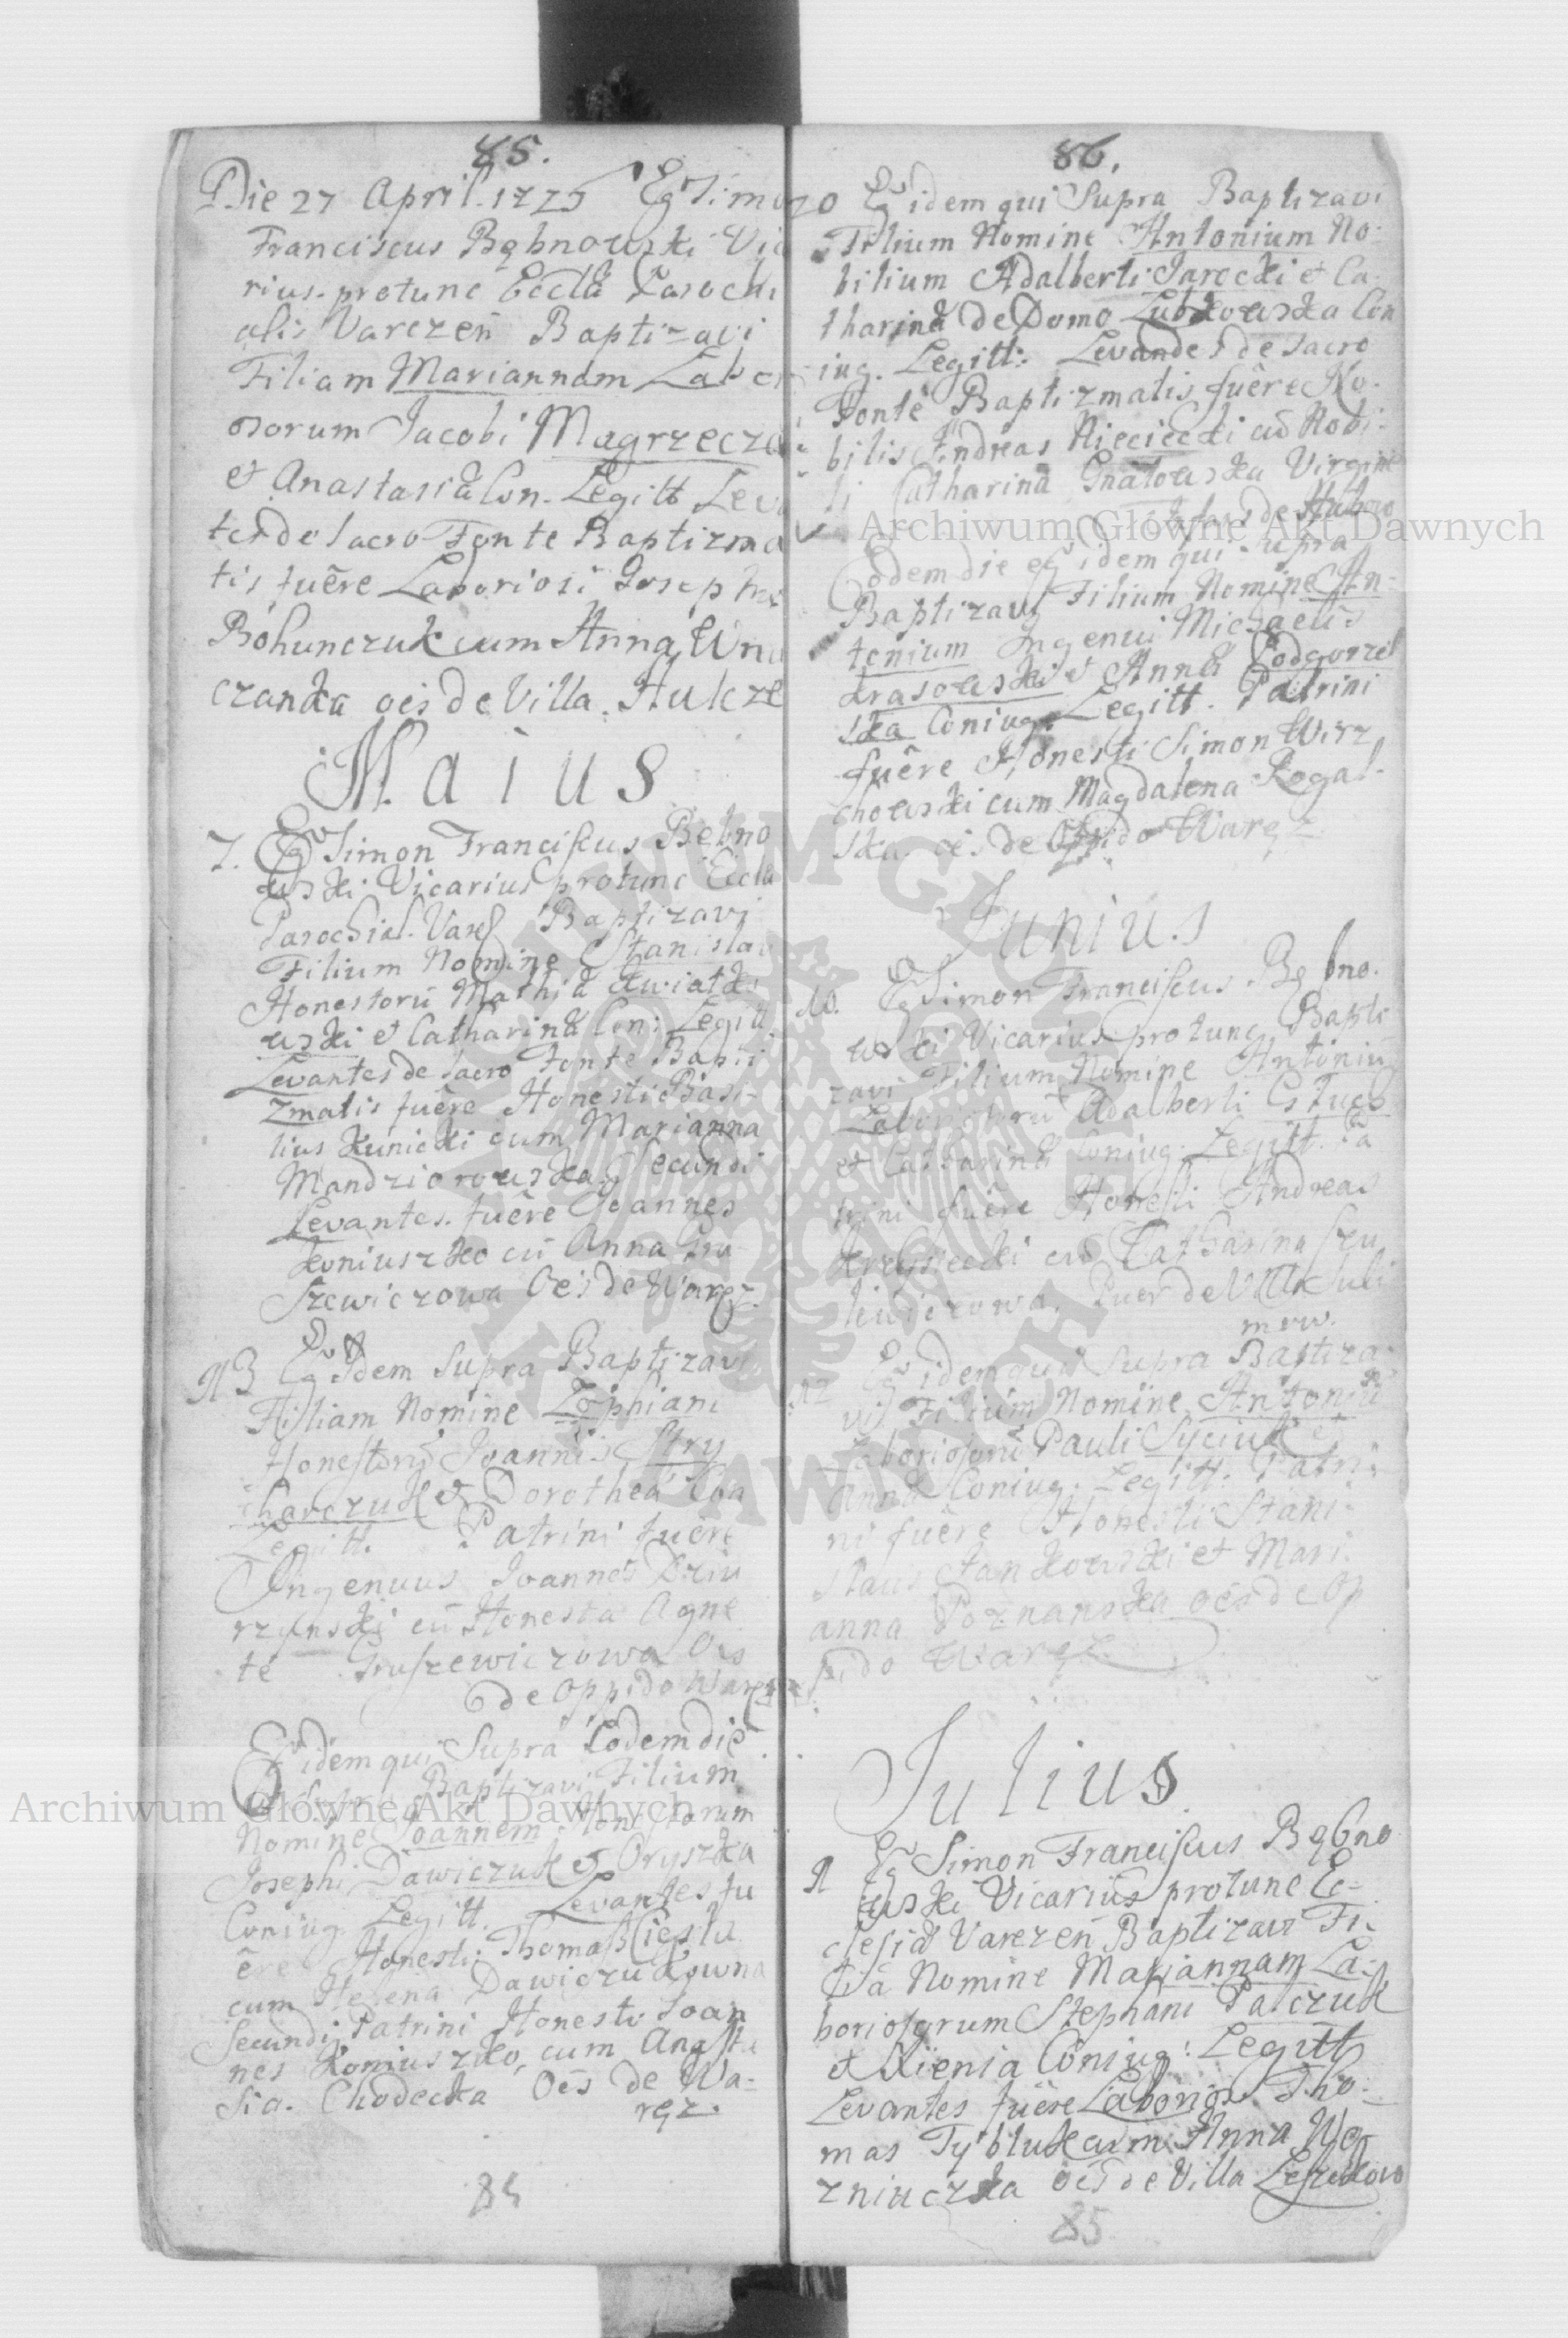 85.
Die 27 April. 1775 Eg Simon
Franciscus Bębnowski Vic
rius protunc Eccla Parochi
alis Varezen Baptizavi
Filiam Mariannam Labor
osorum Jacobi Magrzecza
et Anastasia Con. Legitt Leva
tes de Sacro Fonte Baptizma
tis fuêre Laboriosi Joseph
Bohunczuk cum Anna
czanka oēs de Villa Hulcze
Maius
7. Eg Simon Franciscus Bębno
wski Vicarius protunc Eccla
Parochial. Varez Baptizavi
Filium Nomine Stanislau
Honestorū Mathia Kwiatko
wski et Catharina Con: Legitt
Levantes de Sacro Fonte Bapti
zmatis fuêre Honesti Basi-
lius Kunicki cum Marianna
Mandziorowska Secundi
Levantes fuêre Joannes
Koniuszko cū Anna Gru
Szewiczowa Oēs de Waręz.
13 Eg Idem Supra Baptizavi
Filiam Nomine Zophiam
Honestorū Joannis Stry
charczuk et Dorothea Con
Legitt. Patrini fuêre
Ingenuus Joannes Dziu
rzynski cū Honesta Agne
te Gruszewiczowa Oēs
de Oppido Waręz
Eg idem qui Supra Eodem die
Baptizavi Filium
Nomine Joannem Honestorum
Josephi Dawiczuk et Oryszka
Coniug. Legitt. Levantes fu
êre Honesti Thomas Ciesla
cum Helena Dawiczukowna
Secundi Patrini Honesti Joan
nes Koniuszko cum Anasta
sia Chodecka Oēs de Wa-
ręz.
84
86.
20 Eg idem qui Supra Baptizavi
Filium Nomine Antonium No-
bilium Adalberti Jarecki et Ca-
tharina de Domo Lubkowska Con
iug. Legitt: Levandes de Sacro
Fonte Baptizmatis fuêre No-
bilis Andreas Nieciecki cū Nobi-
li Catharina Gnatowska Virgine
de Hulcze
Eodem die eg idem qui supra
Baptizavi Filium Nomine An-
tonium Ingenui Michaelis
Krasowski et Anna Podgorzel
ska Coniug. Legitt. Patrini
fuêre Honesti Simon Wirz
chowski cum Magdalena Rogal-
ska oēs de Oppido Waręz
Junius
10. Eg Simon Franciscus Bębno-
wski Vicarius protunc Bapti
zavi Filium Nomine Antoniu
Laboriosorū Adalberti
et Catharina Coniug. Legitt. Pa
trini fuêre Honesti Andreas
cū Catharina Szu
lewiczowa. Puer de Villa Suli
mow.
12 Eg idem qui Supra Baptiza
vi Filium Nomine Antoniu
Laboriosorū Pauli Syciuk et
Anna Coniug. Legitt: Patri-
ni fuêre Honesti Stani-
slaus Jankowski et Mari
anna Poznanska oēs de Op
pido Waręz
Julius
1 Eg Simon Franciscus Bębno
wski Vicarius protunc Ec-
clesia Varezen Baptizavi Fi-
liā Nomine Mariannam La-
boriosorum Stephani Palczuk
et Xienia Coniug: Legitt
Levantes fuêre Laborios Tho-
mas Tybluk cum Anna Wo
zniuczka oēs de Villa Leszczkow
85
Archiwum Główne Akt Dawnych
Archiwum Główne Akt Dawnych
ARCHIWUM GŁÓWNE AKT DAWNYCH